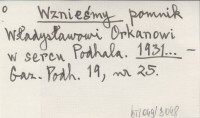 Wznieśmy pomnik
Władysławowi Orkanowi
w sercu Podhala. 1931... –
Gaz. Podh. 19, nr 25.